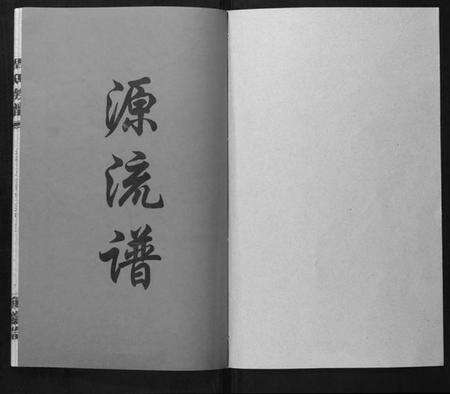 源流谱